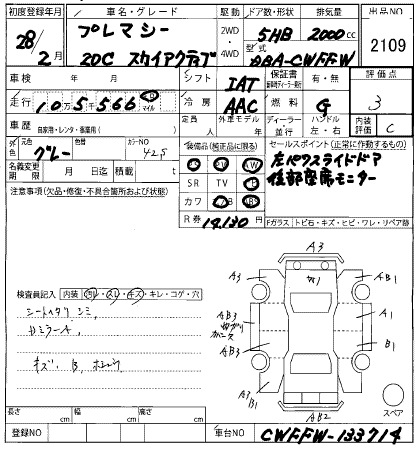 初度登録年月 車名・グレード 駆動 ドア数・形状 排気量 出品NO
28年2月 プレマシー 2WD・4WD 5HB 2000cc 2109
20C スカイアクティブ 型式 DBA-CWFFW
車検 年 月 シフト IAT 保証書 有・無 評価点 3
走行 105,566 km マイル 冷房 AAC 燃料 G
車歴 自家用・レンタ・事業用( ) 定員 人 外車モデル 年 ディーラー・並行 ハンドル 左・右 内装評価 C
外色 元色 グレー 色替 カラーNO 42S
装備品(純正品に限る)
セールスポイント(正常に作動するもの)
左パワスライドドア
後部座席モニター
名義変更期限 月 日迄 積載 t
SR TV
カワ AB
注意事項(欠品・修復・不具合箇所および状態)
R券 14,130円
Fガラス トビ石・キズ・ヒビ・ワレ・リペア跡
検査員記入 内装 汚レ・スレ・キズ・キレ・コゲ・穴
シートヘタリ シミ、
キズ・B、
A3
A3 AB1
AB3 A1
AB3 B1
A3 B1 A3
AB2
スペア
長さ cm 幅 cm 高さ cm
登録NO 車台NO CWFFW-133714